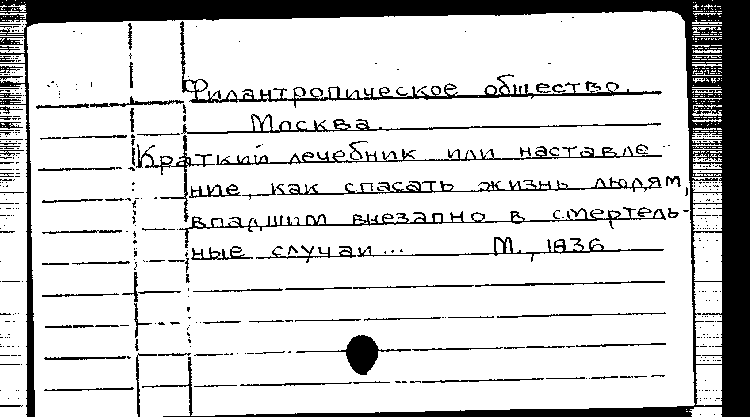 Филантропическое общество.
Москва.
Краткий лечебник или наставле-
ние, как спасать жизнь людям,
впадшим внезапно в смертель-
ные случаи... М., 1836